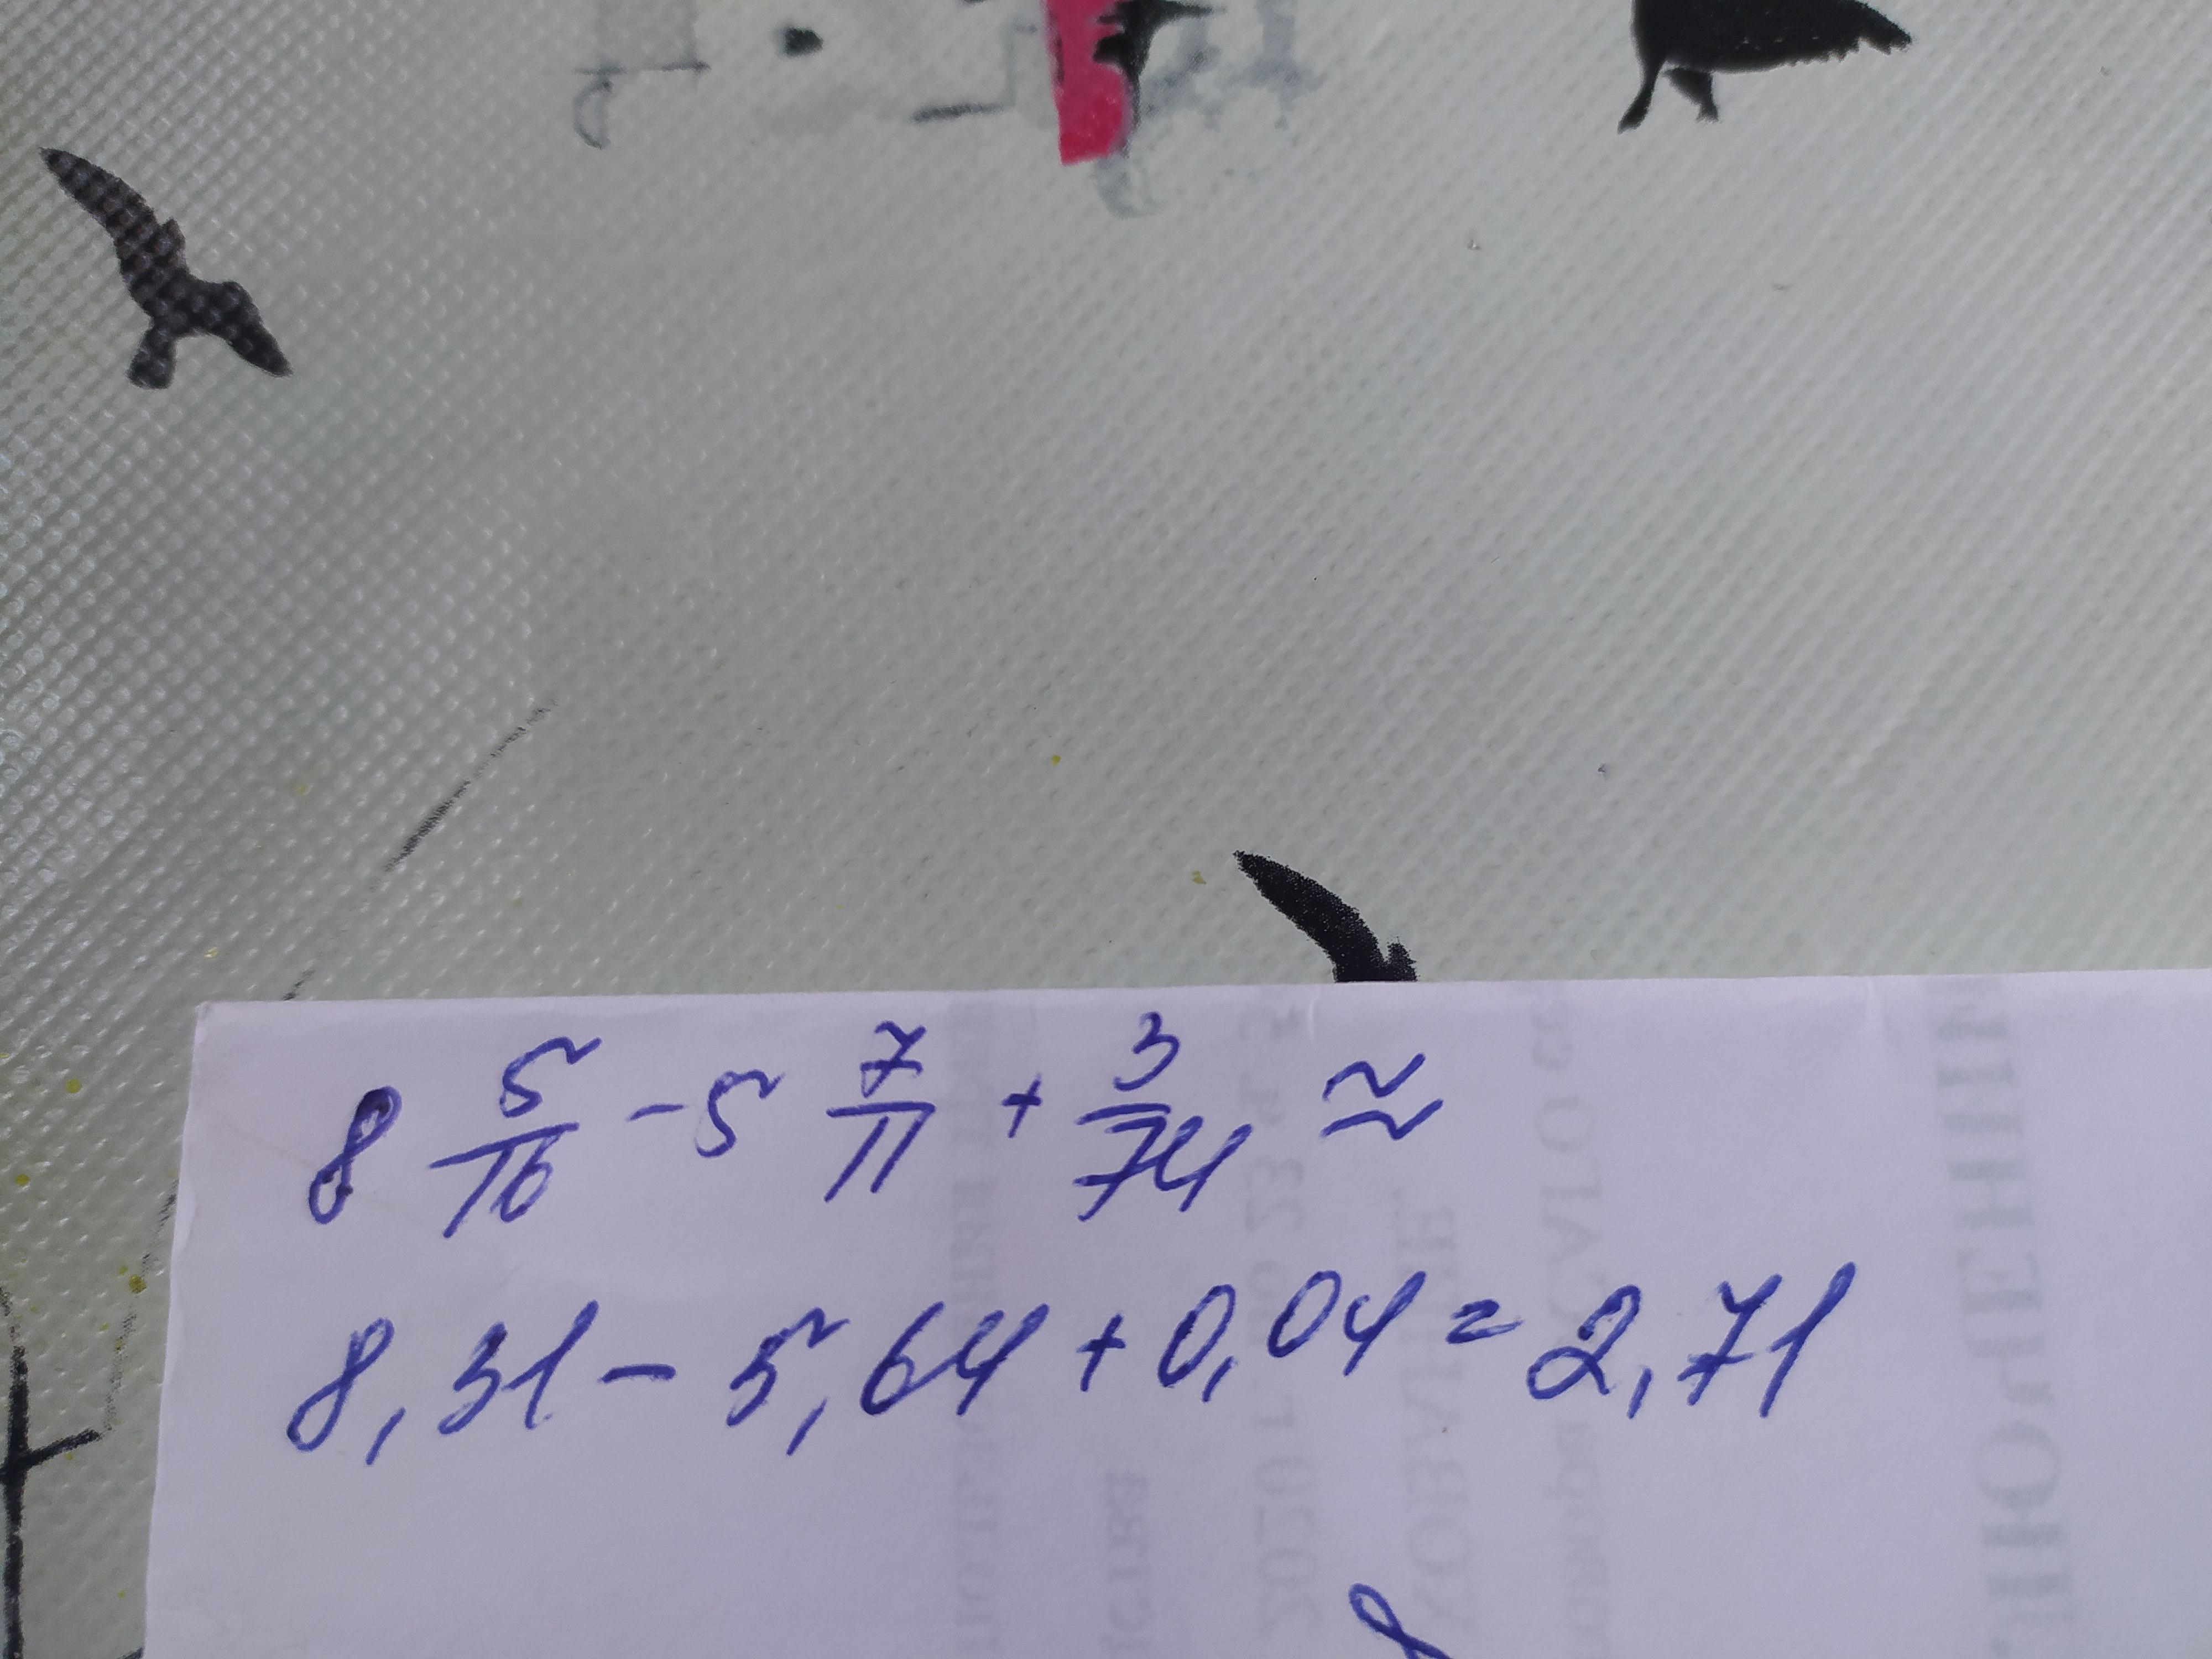 8 5/16 - 5 7/11 + 3/74 ≈
8,31 - 5,64 + 0,04 = 2,71